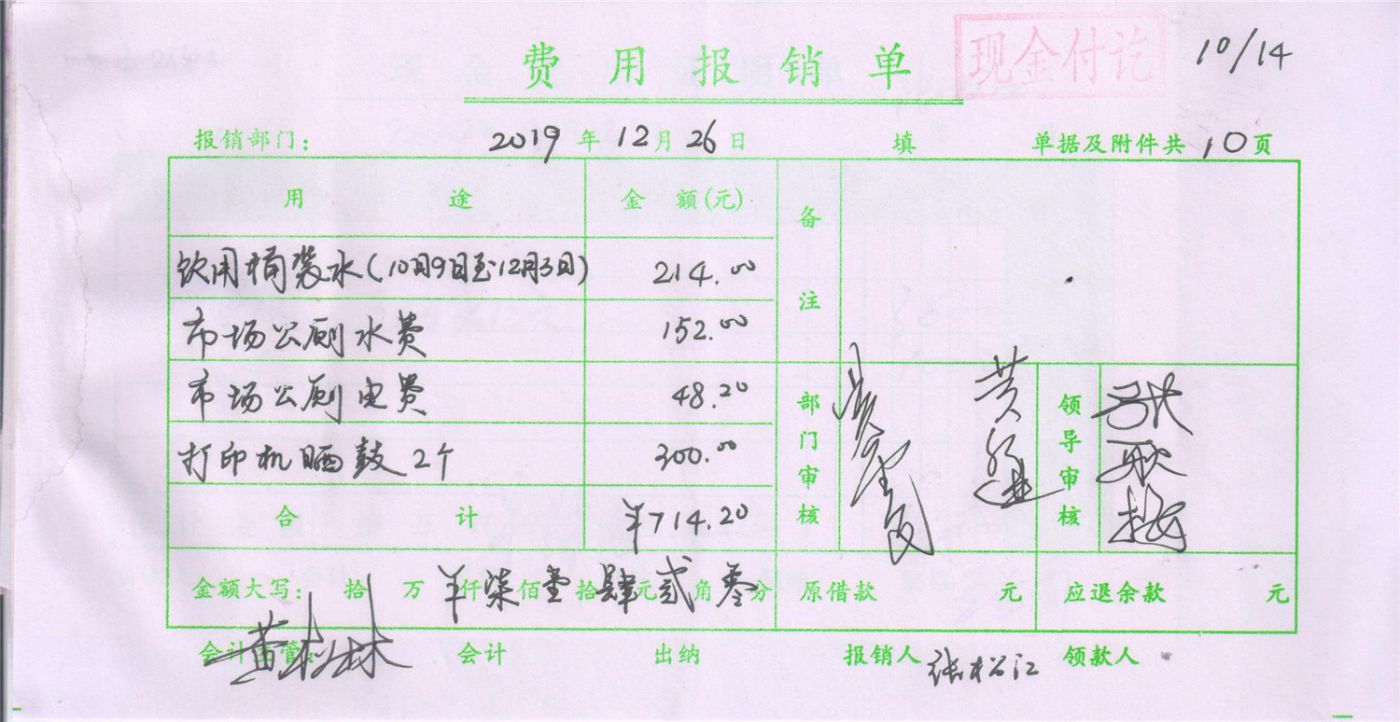 费用报销单 现金付讫 10/14
报销部门： 2019年12月26日 填 单据及附件共10页
用途 金额(元) 备注
饮用桶装水(10月9日至12月3日) 214.00
市场公厕水费 152.00
市场公厕电费 48.20
打印机晒鼓2个 300.00
部门审核 黄 领导审核
合计 ¥714.20
金额大写： 拾 万 ¥仟柒佰壹拾肆元贰角零分 原借款 元 应退余款 元
会计主管： 黄彬林 会计 出纳 报销人 张松江 领款人